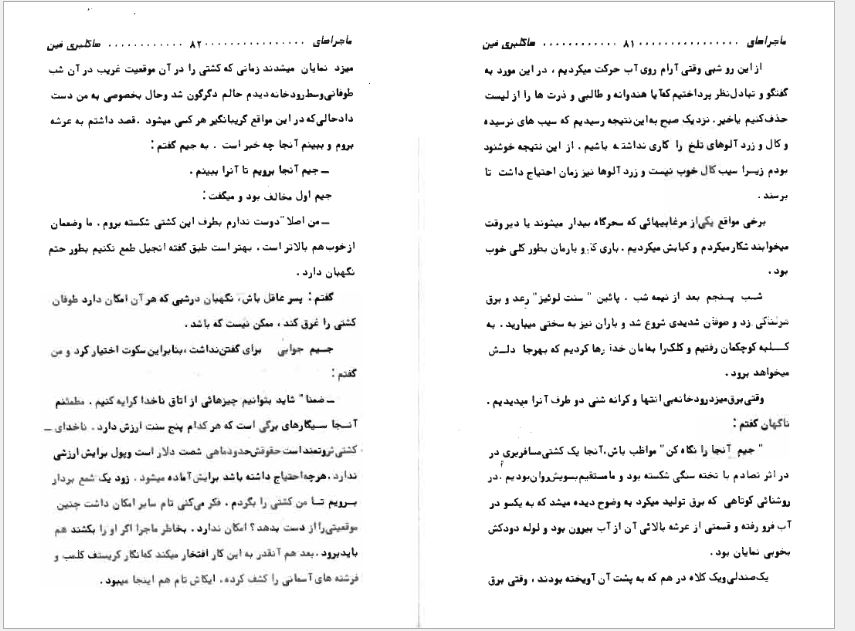 ماجراهای ................ ۸۱ ............ هاکلبری فین
از این رو شبی وقتی آرام روی آب حرکت میکردیم ، در این مورد به
گفتگو و تبادل نظر پرداختیم که آیا هندوانه و طالبی و ذرت ها را از لیست
حذف کنیم یا خیر . نزدیک صبح به این نتیجه رسیدیم که سیب های نرسیده
و کال و زرد آلوهای تلخ را کاری نداشته باشیم . از این نتیجه خوشنود
بودم زیرا سیب کال خوب نیست و زرد آلوها نیز زمان احتیاج داشت تا
برسند .
برخی مواقع یکی از مرغابیهائی که سحرگاه بیدار میشوند یا دیر وقت
میخوابند شکار میکردم و کبابش میکردیم . باری کار و بارمان بطور کلی خوب
بود .
شب پنجم بعد از نیمه شب . پائین " سنت لوئیز" رعد و برق
ترسناکی زد و طوفان شدیدی شروع شد و باران نیز به سختی میبارید . به
کلبه کوچکمان رفتیم و کلک را به امان خدا رها کردیم که بهرجا دلش
میخواهد برود .
وقتی برق میزد رودخانه بی انتها و کرانه شنی دو طرف آنرا میدیدیم .
ناگهان گفتم :
" جیم آنجا را نگاه کن" مواظب باش، آنجا یک کشتی مسافربری در
در اثر تصادم با تخته سنگی شکسته بود و ما مستقیم بسویش روان بودیم . در
روشنائی کوتاهی که برق تولید میکرد به وضوح دیده میشد که به یکسو در
آب فرو رفته و قسمتی از عرشه بالائی آن از آب بیرون بود و لوله دودکش
بخوبی نمایان بود .
یک صندلی ویک کلاه در هم که به پشت آن آویخته بودند ، وقتی برق
ماجراهای ................ ۸۲ ............ هاکلبری فین
میزد نمایان میشدند زمانی که کشتی را در آن موقعیت غریب در آن شب
طوفانی وسط رودخانه دیدم حالم دگرگون شد وحال بخصوصی به من دست
داد حالی که در این مواقع گریبانگیر هر کسی میشود . قصد داشتم به عرشه
بروم و ببینم آنجا چه خبر است . به جیم گفتم :
ــ جیم آنجا برویم تا آنرا ببینم .
جیم اول مخالف بود و میگفت :
ــ من اصلا" دوست ندارم بطرف این کشتی شکسته بروم . ما وضعمان
از خوب هم بالاتر است . بهتر است طبق گفته انجیل طمع نکنیم بطور حتم
نگهبان دارد .
گفتم : پسر عاقل باش، نگهبان درشبی که هر آن امکان دارد طوفان
کشتی را غرق کند ، ممکن نیست که باشد .
جیم جوابی برای گفتن نداشت، بنابراین سکوت اختیار کرد و من
گفتم :
ــ ضمنا" شاید بتوانیم چیزهائی از اتاق ناخدا کرایه کنیم . مطمئنم
آنجا سیگارهای برگی است که هر کدام پنج سنت ارزش دارد . ناخدای ــ
کشتی ثروتمند است حقوقش حدود ماهی شصت دلار است وپول برایش ارزشی
ندارد . هرچه احتیاج داشته باشد برایش آماده میشود . زود یک شمع بردار
برویم تا من کشتی را بگردم . فکر می‌کنی تام سایر امکان داشت چنین
موقعیتی را از دست بدهد ؟ امکان ندارد . بخاطر ماجرا اگر او را بکشند هم
باید برود . بعد هم آنقدر به این کار افتخار میکند که انگار کریستف کلمب و
فرشته های آسمانی را کشف کرده . ایکاش تام هم اینجا میبود .